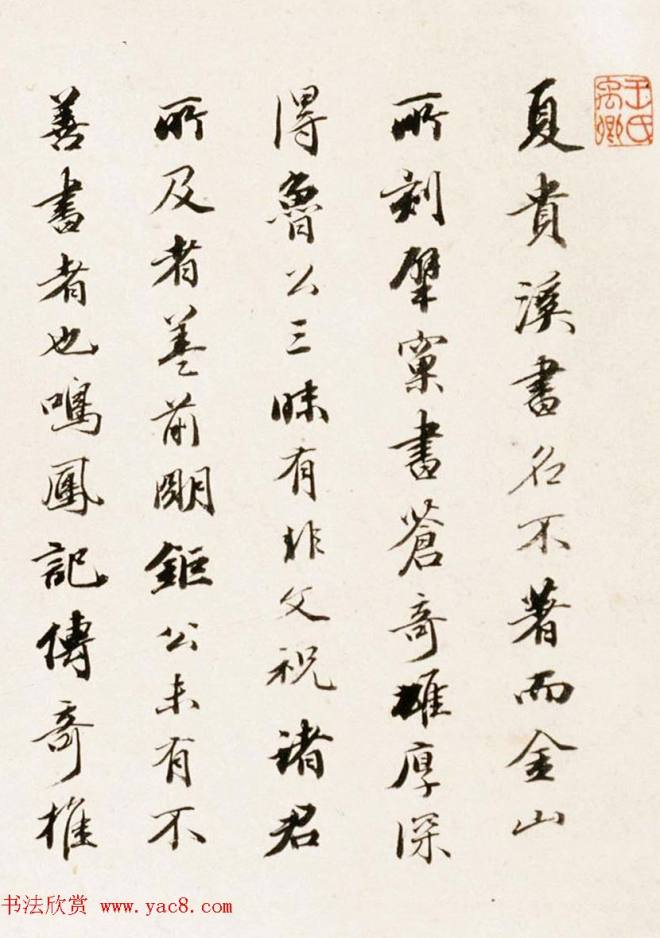 王氏禹卿
夏貴溪書名不著而金山
所刻擘窠書蒼奇雄厚深
得魯公三昧有非文祝諸君
所及者蓋前朙鉅公未有不
善書者也鳴鳳記傳奇推
书法欣赏 www.yac8.com